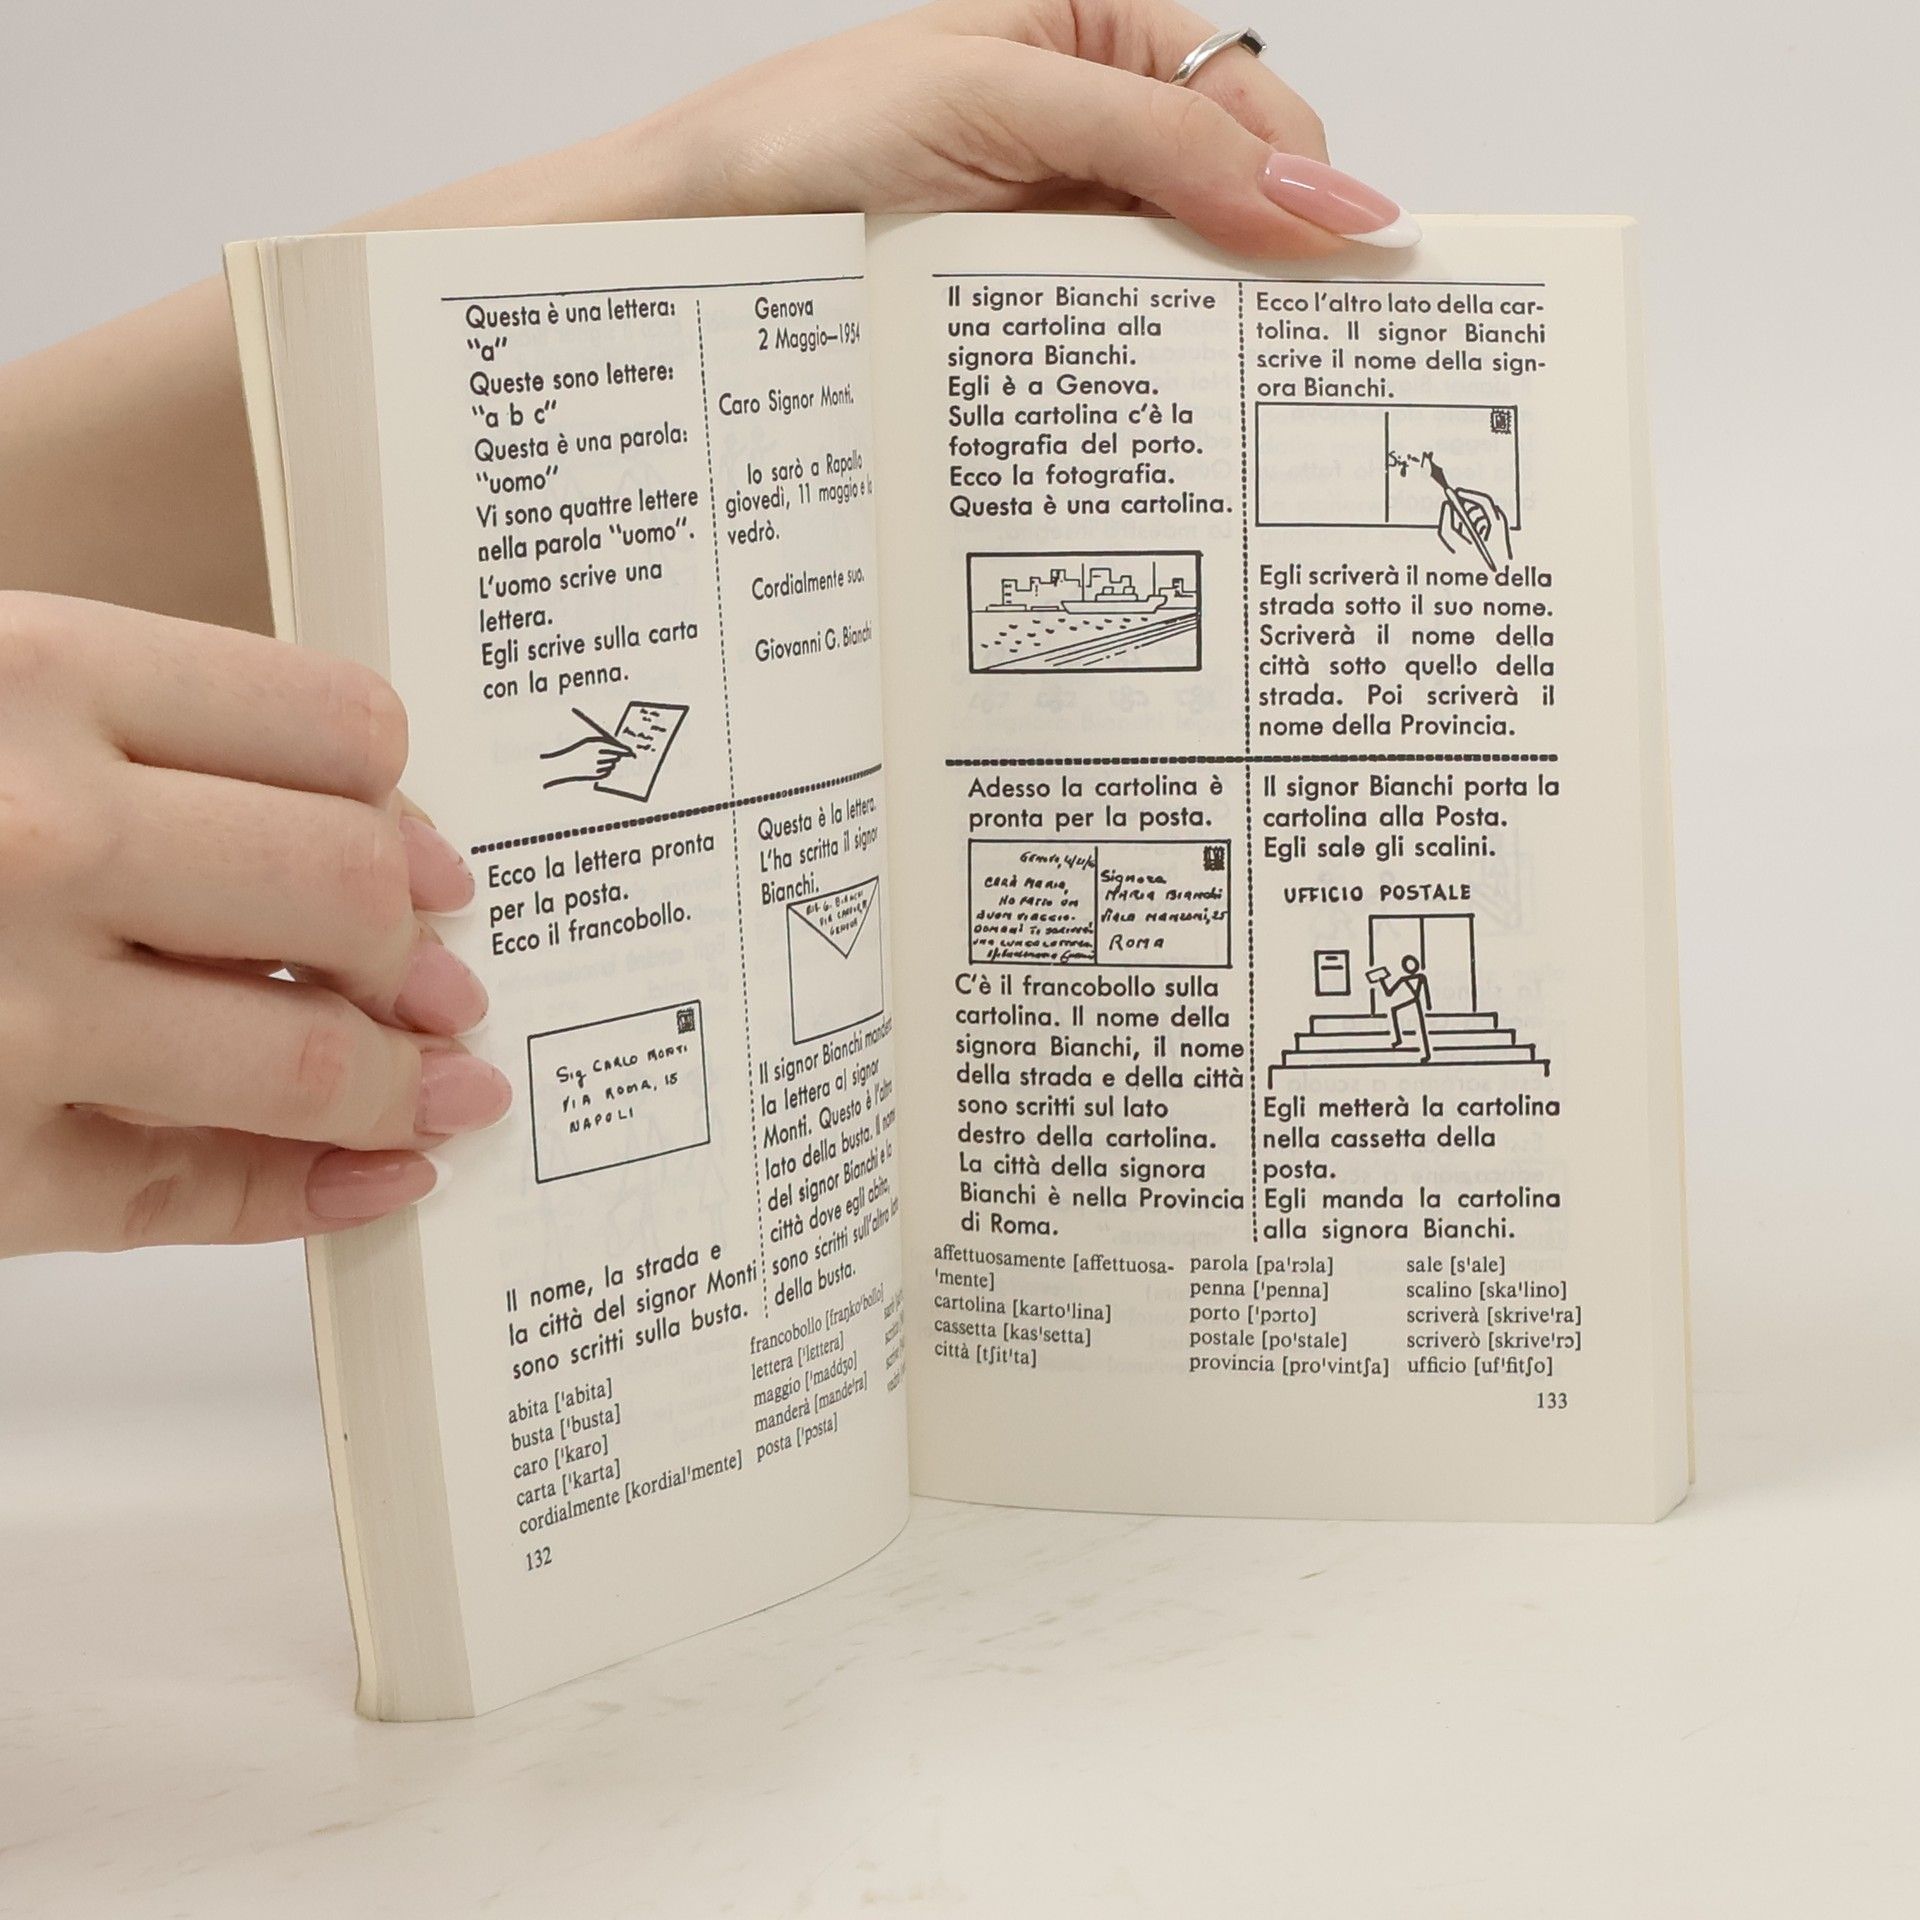 Questa è una lettera:
"a"
Queste sono lettere:
"a b c"
Questa è una parola:
"uomo"
Vi sono quattre lettere
nella parola "uomo".
L'uomo scrive una
lettera.
Egli scrive sulla carta
con la penna.
Genova
2 Maggio—1954
Caro Signor Monti.
Io sarò a Rapallo
giovedì, 11 maggio e
vedrò.
Cordialmente suo.
Giovanni G. Bianchi
Ecco la lettera pronta
per la posta.
Ecco il francobollo.
Sig CARLO MONTI
VIA ROMA, 15
NAPOLI
Il nome, la strada e
la città del signor Monti
sono scritti sulla busta.
Questa è la lettera.
L'ha scritta il signor
Bianchi.
G. BIANCHI
VIA CAVOUR,
GENOVA
Il signor Bianchi manderà
la lettera al signor
Monti. Questo è l'altro
lato della busta. Il nome
del signor Bianchi e la
città dove egli abita,
sono scritti sull'altro lato
della busta.
abita ['abita]
busta ['busta]
caro ['karo]
carta ['karta]
cordialmente [kordial'mente]
francobollo [franko'bollo]
lettera ['lɛttera]
maggio ['maddʒo]
manderà [mande'ra]
posta ['pɔsta]
132
Il signor Bianchi scrive
una cartolina alla
signora Bianchi.
Egli è a Genova.
Sulla cartolina c'è la
fotografia del porto.
Ecco la fotografia.
Questa è una cartolina.
Ecco l'altro lato della car-
tolina. Il signor Bianchi
scrive il nome della sign-
ora Bianchi.
Sig-ra M
Egli scriverà il nome della
strada sotto il suo nome.
Scriverà il nome della
città sotto quello della
strada. Poi scriverà il
nome della Provincia.
Adesso la cartolina è
pronta per la posta.
Genova,
CARA MARIA,
HO FATTO UN
BUON VIAGGIO.
DOMANI TI SCRIVERÒ
UNA LUNGA LETTERA
Signora
MARIA BIANCHI
VIALE MANZONI, 25
ROMA
C'è il francobollo sulla
cartolina. Il nome della
signora Bianchi, il nome
della strada e della città
sono scritti sul lato
destro della cartolina.
La città della signora
Bianchi è nella Provincia
di Roma.
Il signor Bianchi porta la
cartolina alla Posta.
Egli sale gli scalini.
UFFICIO POSTALE
Egli metterà la cartolina
nella cassetta della
posta.
Egli manda la cartolina
alla signora Bianchi.
affettuosamente [affettuosa-
'mente]
cartolina [karto'lina]
cassetta [kas'setta]
città [tʃit'ta]
parola [pa'rɔla]
penna ['penna]
porto ['pɔrto]
postale [po'stale]
provincia [pro'vintʃa]
sale [s'ale]
scalino [ska'lino]
scriverà [skrive'ra]
scriverò [skrive'rɔ]
ufficio [uf'fitʃo]
133